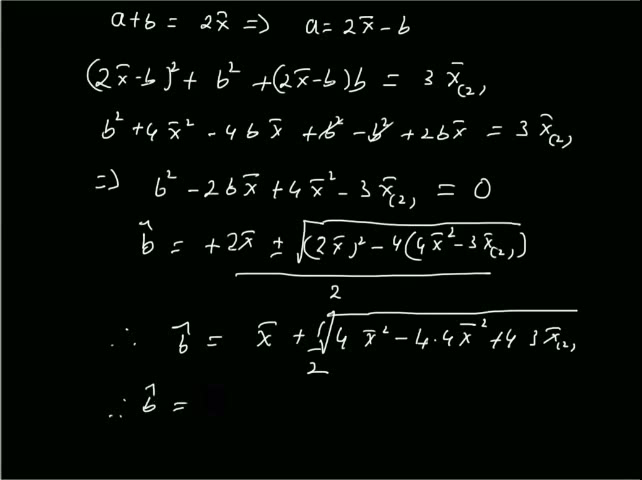 a+b = 2x̄ => a = 2x̄ - b
(2x̄-b)² + b² + (2x̄-b)b = 3 x̄₍₂₎
b² + 4x̄² - 4bx̄ + b² - b² + 2bx̄ = 3 x̄₍₂₎
=> b² - 2bx̄ + 4x̄² - 3x̄₍₂₎ = 0
b̂ = +2x̄ ± √((2x̄)² - 4(4x̄² - 3x̄₍₂₎))
2
∴ b̂ = x̄ + 1/2 √(4 x̄² - 4·4x̄² + 4 3x̄₍₂₎
∴ b̂ =